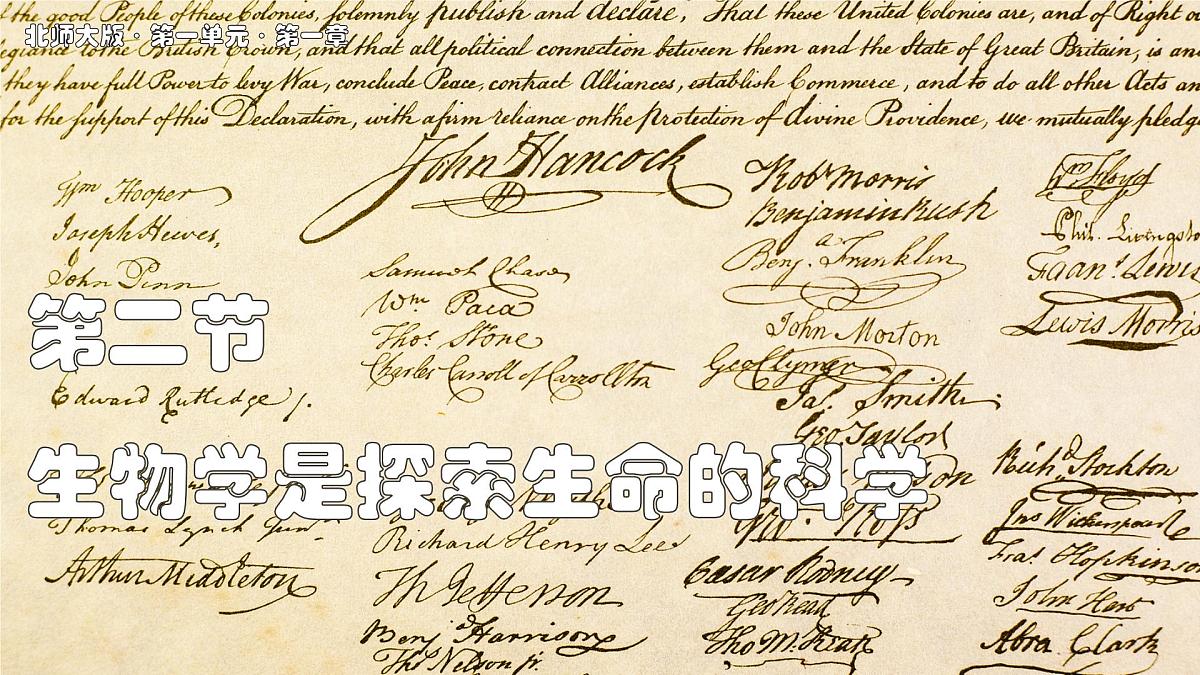 the good People of these Colonies, solemnly publish and declare, That these United Colonies are, and of Right o
北师大版·第一单元·第一章
egiance to the British Crown, and that all political connection between them and the State of Great Britain, is and
they have full Power to levy War, conclude Peace, contract Alliances, establish Commerce, and to do all other Acts an
for the support of this Declaration, with a firm reliance on the Protection of divine Providence, we mutually pledge
John Hancock
Wm Hooper
Joseph Hewes,
John Penn
Edward Rutledge /.
Thomas Lynch Junr.
Arthur Middleton
Samuel Chase
Wm. Paca
Thos. Stone
Charles Carroll of Carrollton
Richard Henry Lee
Th Jefferson
Benja Harrison
Thos Nelson jr.
Robt Morris
Benjamin Rush
Benja. Franklin
John Morton
Geo Clymer
Jas. Smith
Geo. Taylor
Geo. Ross
Caesar Rodney
Geo Read
Tho M:Kean
Wm Floyd
Phil. Livingsto
Frans. Lewis
Lewis Morris
Richd. Stockton
Jno Witherspoon
Fras. Hopkinson
John Hart
Abra Clark
第二节
生物学是探索生命的科学